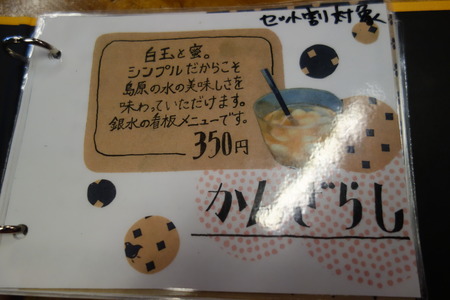 セット割対象
白玉と蜜。
シンプルだからこそ
島原の水の美味しさを
味わっていただけます。
銀水の看板メニューです。
350円
かんざらし